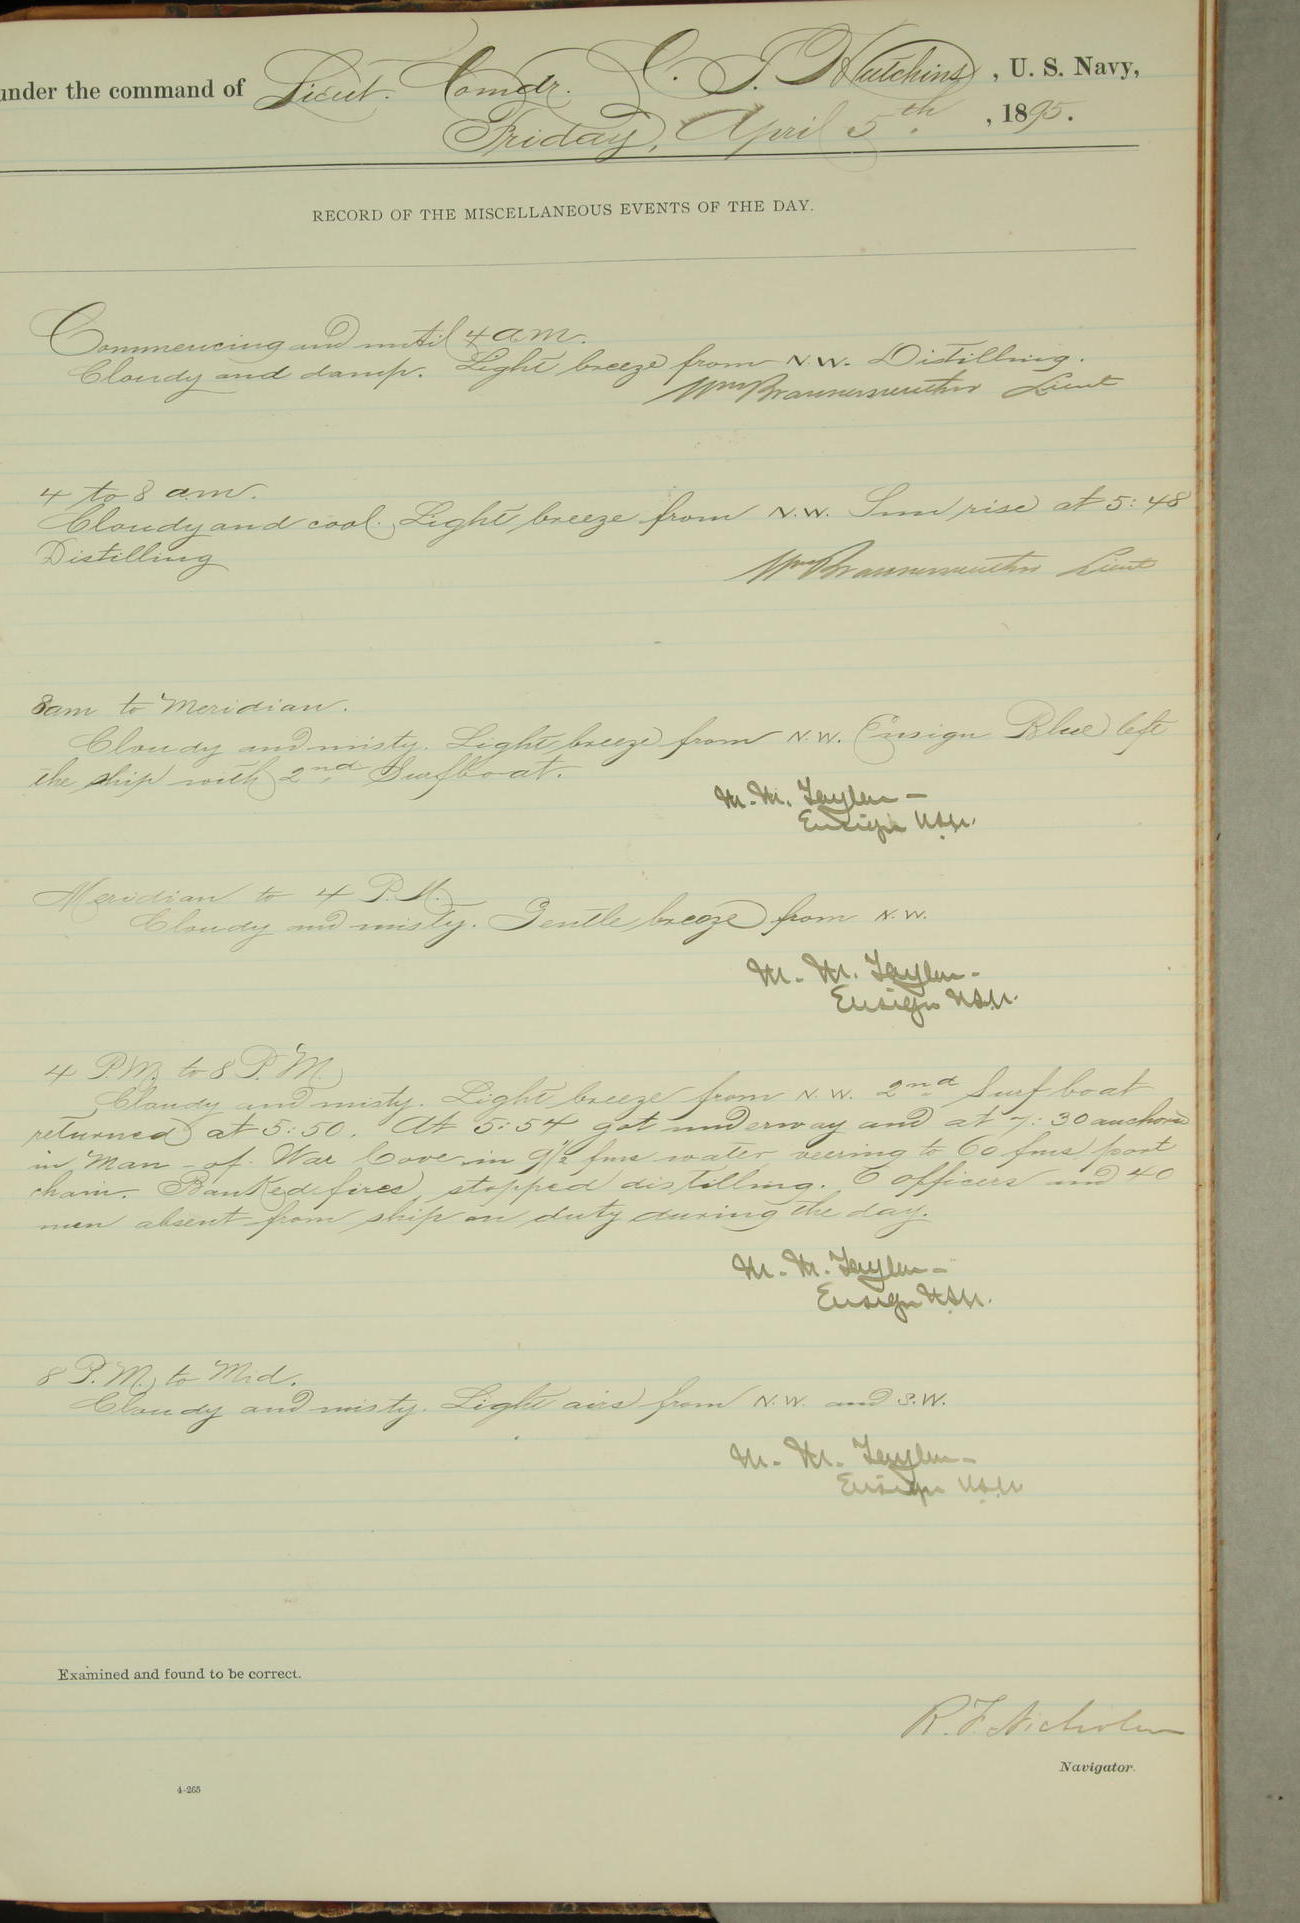 under the command of Lieut. Comdr. C. T. Hutchins, U. S. Navy,
Friday, April 5th, 1895.
RECORD OF THE MISCELLANEOUS EVENTS OF THE DAY.
Commencing and until 4 am.
Cloudy and damp. Light breeze from N.W. Distilling.
Wm Braunersreuther Lieut
4 to 8 am.
Cloudy and cool. Light breeze from N.W. Sun rise at 5:48
Distilling
Wm Braunersreuther Lieut
8am to Meridian.
Cloudy and misty. Light breeze from N.W. Ensign Blue left
the ship with 2nd Surfboat.
M. M. Taylor -
Ensign U.S.N.
Meridian to 4 P.M.
Cloudy and misty. Gentle breeze from N.W.
M. M. Taylor -
Ensign U.S.N.
4 P.M. to 8 P.M.
Cloudy and misty. Light breeze from N.W. 2nd Surf boat
returned at 5:50. At 5:54 got underway and at 7:30 anchored
in Man-of-War Cove in 9½ fms water veering to 60 fms port
chain. Banked fires, stopped distilling. 6 officers and 40
men absent from ship on duty during the day.
M. M. Taylor -
Ensign U.S.N.
8 P.M. to Mid.
Cloudy and misty. Light airs from N.W. and S.W.
M. M. Taylor -
Ensign U.S.N
Examined and found to be correct.
R. F. Nicholson
Navigator.
4-265